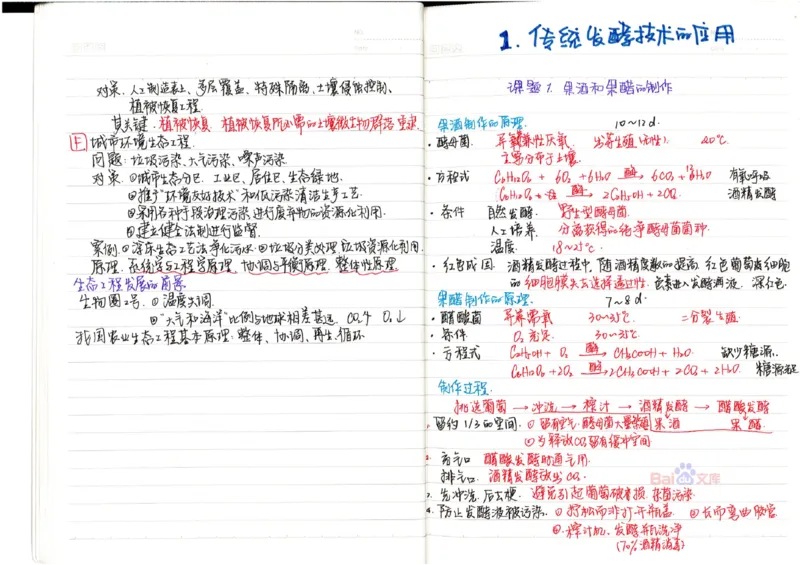 对象. 人工制造表土、多层覆盖、特殊隔离、土壤侵蚀控制、
植被恢复工程.
其关键: 植被恢复. 植被恢复所必需的土壤微生物群落重建.
F 城市环境生态工程.
问题: 垃圾污染、大气污染、噪声污染
对策. ①城市生态分区. 工业区、居住区、生态绿地.
②推广"环境友好技术"和低污染清洁生产工艺.
③采用各种手段治理污染. 进行废弃物的资源化利用.
④建立健全法制进行监督.
案例. ①浮床生态工艺法净化污水. ②垃圾分类处理 垃圾资源化利用.
原理. 系统学与工程学原理, 协调与平衡原理, 整体性原理.
生态工程发展的前景.
生物圈2号. ①温度失调.
②"大气和海洋"比例与地球相差甚远. CO₂↑ O₂↓
我国农业生态工程基本原理: 整体、协调、再生、循环.
1. 传统发酵技术的应用
课题1. 果酒和果醋的制作
果酒制作的原理. 10~12d.
·酵母菌. 异养兼性厌氧. 出芽生殖 20℃.
主要分布于土壤.
·方程式 C₆H₁₂O₆ + 6O₂ + 6H₂O 酶→ 6CO₂ + 12H₂O 有氧呼吸
C₆H₁₂O₆ 酶→ 2C₂H₅OH + 2CO₂ 酒精发酵
·条件 自然发酵. 野生型酵母菌.
人工培养 分离获得的纯净酵母菌菌种.
温度 18~25℃.
·红色成因. 酒精发酵过程中, 随酒精度数的提高, 红色葡萄皮细胞
的细胞膜失去选择透过性. 色素进入发酵酒液. 深红色.
果醋制作的原理. 7~8d.
·醋酸菌 异养需氧 30~35℃ =分裂生殖
·条件 O₂充足. 30~35℃.
·方程式 C₂H₅OH + O₂ 酶→ CH₃COOH + H₂O 缺少糖源.
C₆H₁₂O₆ + 2O₂ 酶→ 2CH₃COOH + 2CO₂ + 2H₂O. 糖源充足
制作过程.
挑选葡萄 → 冲洗 → 榨汁 → 酒精发酵 → 醋酸发酵
果酒 果醋
1. 留约1/3的空间. ①留有空气. 酵母菌大量繁殖
②为释放CO₂留有缓冲空间
2. 充气口 醋酸发酵时通气用.
排气口. 酒精发酵放出CO₂.
3. 先冲洗. 后去梗. 避免引起葡萄破损. 杂菌污染
4. 防止发酵液被污染. ①拧松而非打开瓶盖. ②长而弯曲胶管
③. 榨汁机、发酵瓶洗净
(70%酒精消毒)
Bai度文库